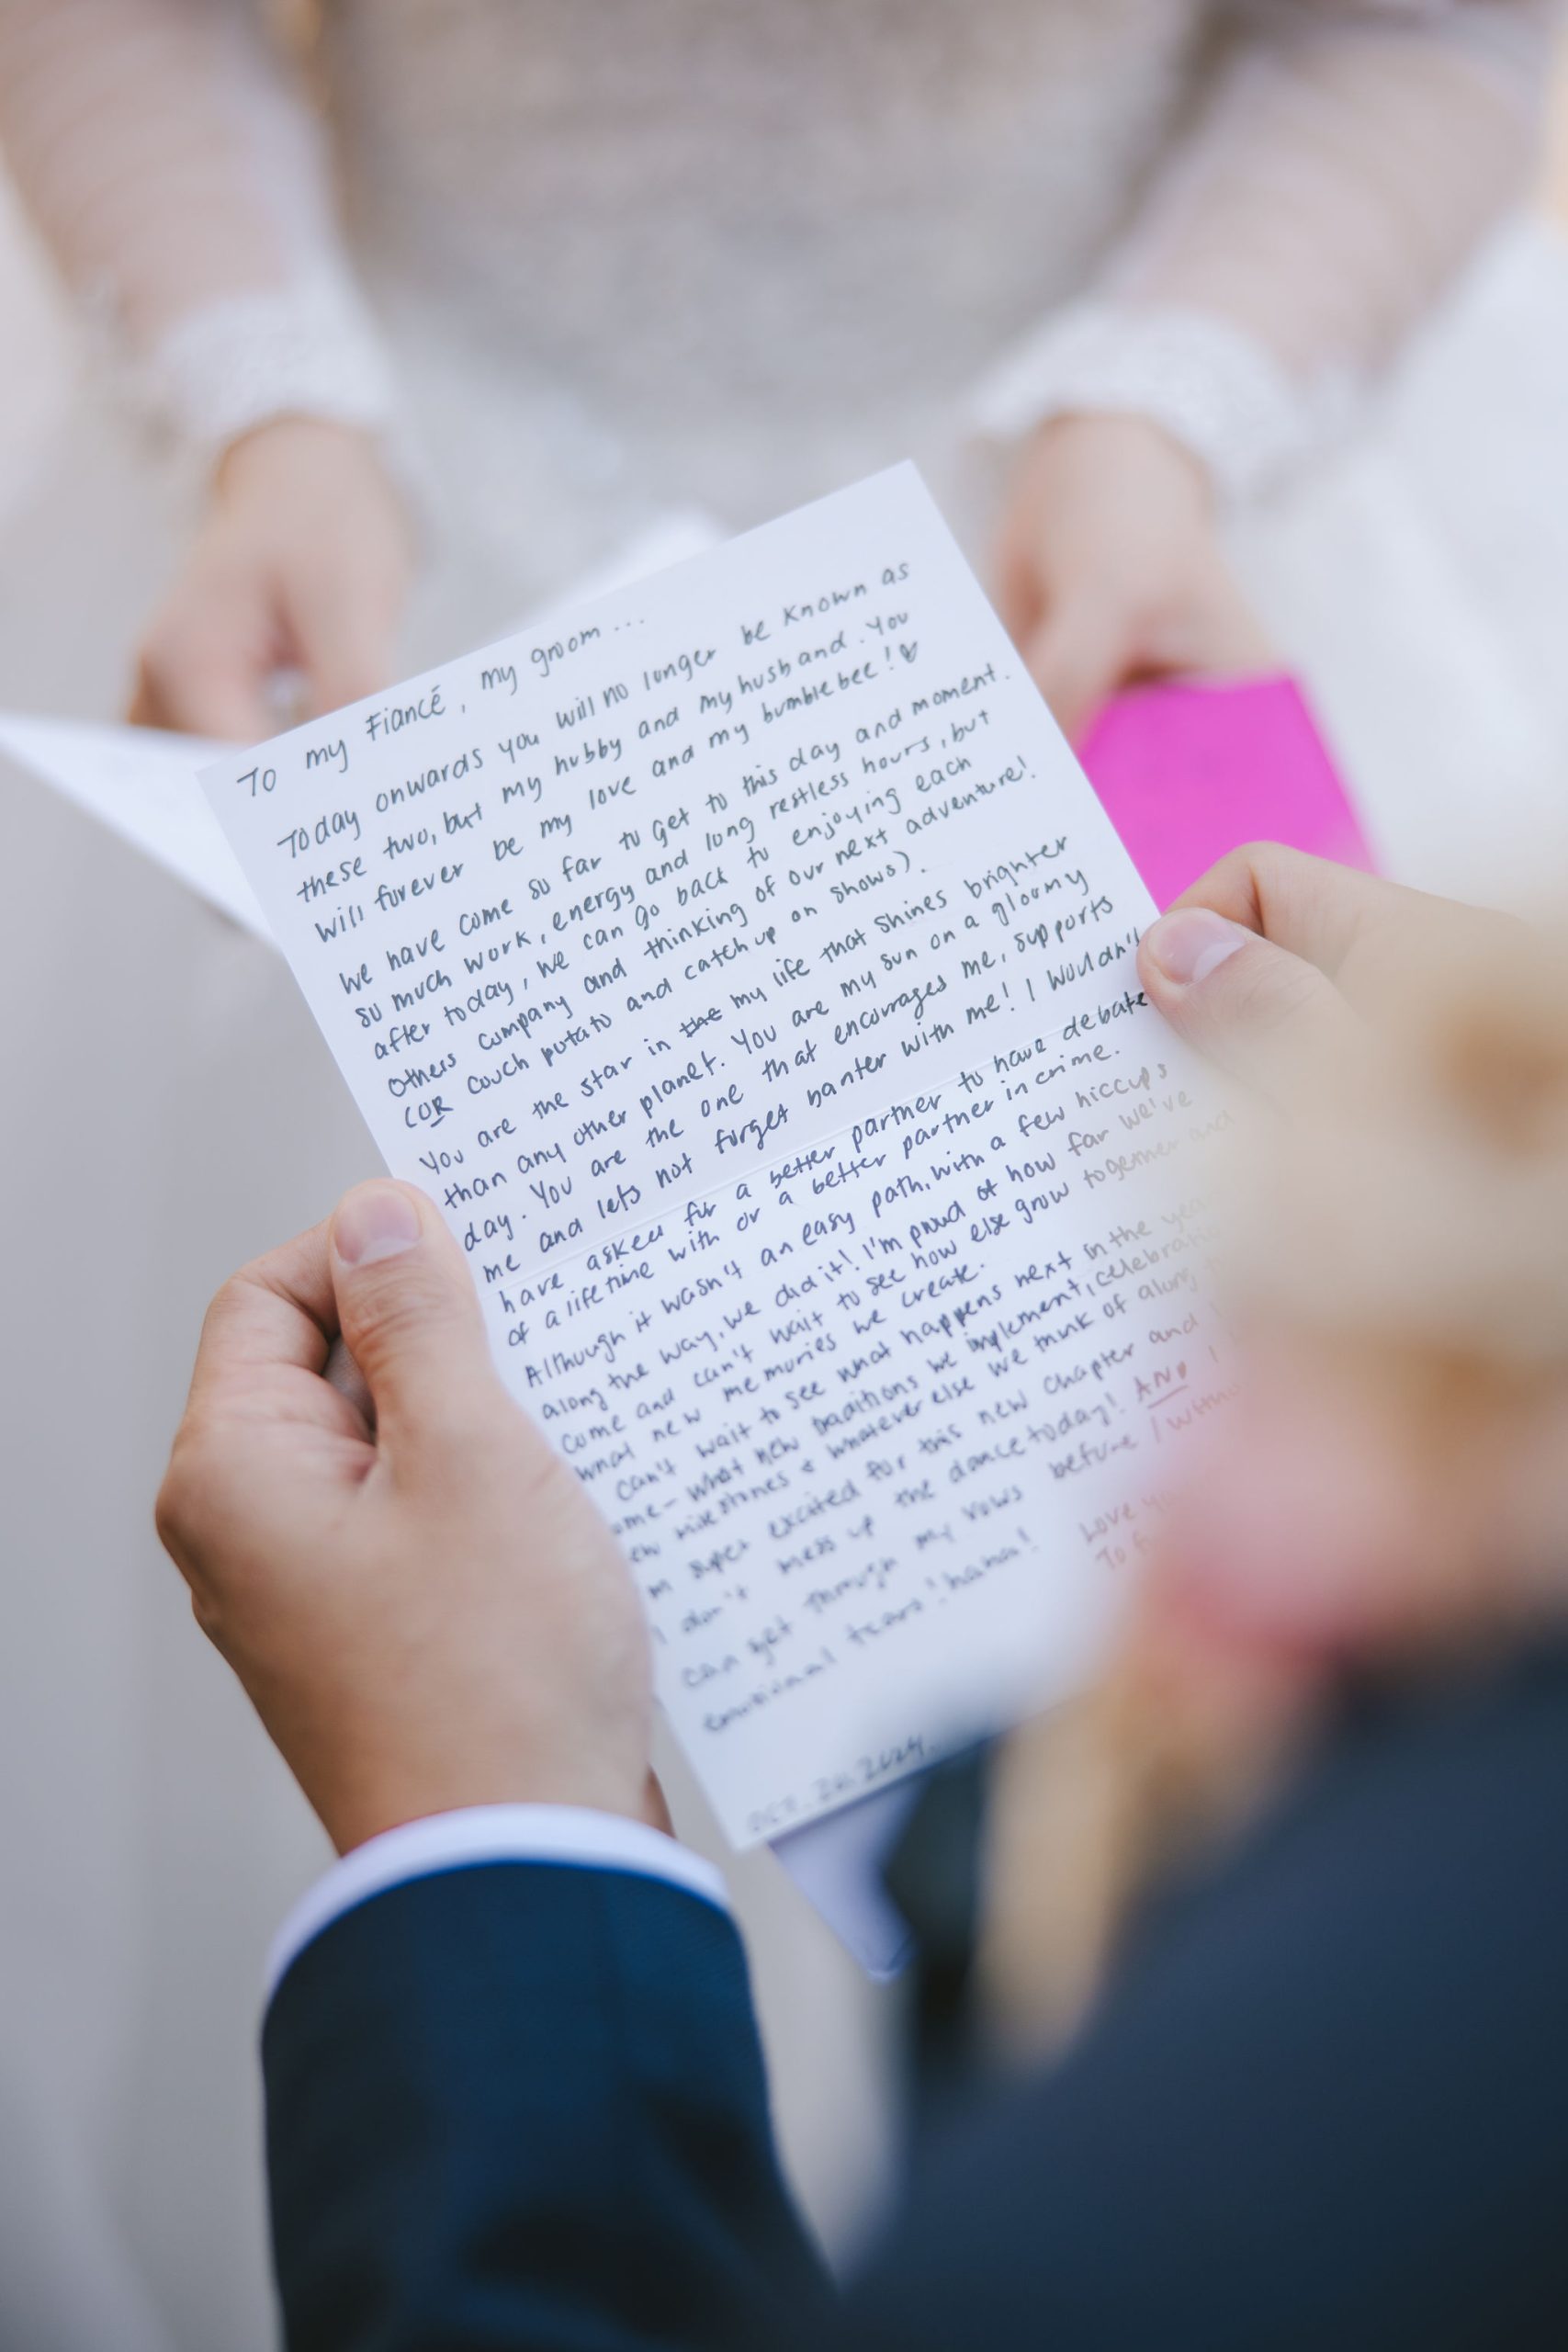 To my Fiancé, my groom...
Today onwards you will no longer be known as
these two, but my hubby and my husband. You
will forever be my love and my bumblebee! ♡
We have come so far to get to this day and moment.
so much work, energy and long restless hours, but
after today, we can go back to enjoying each
others company and thinking of our next adventure!
(OR couch potato and catch up on shows).
You are the star in the my life that shines brighter
than any other planet. You are my sun on a gloomy
day. You are the one that encourages me, supports
me and lets not forget banter with me! I wouldn't
have asked for a better partner to have debate
of a lifetime with or a better partner in crime.
Although it wasn't an easy path, with a few hiccups
along the way, we did it! I'm proud of how far we've
come and can't wait to see how else grow together and
what new memories we create.
can't wait to see what happens next in the
ome - what new traditions we implement, celebratin
ew milestones & whatever else we think of along
m super excited for this new chapter and
I don't mess up the dance today! AND I
can get through my vows before / witho
emotional tears! haha!
Love
To
OCT. 2024.